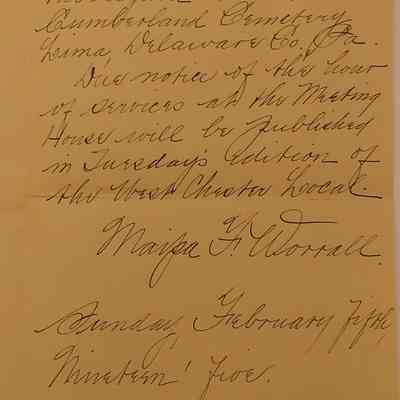 Cumberland Cemetery
Lima, Delaware Co. Pa.
Due notice of the hour
of services at the Meeting
House will be published
in Tuesday's edition of
the West Chester Local.
F. Worrall.
Sunday, February fifth,
Nineteen' five.